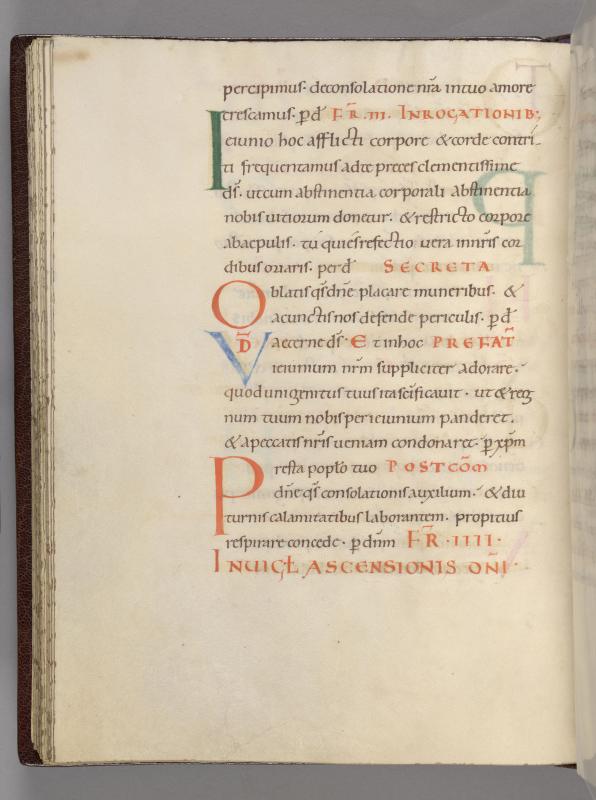 percipimus. deconsolatione nr̄a intuo amore
crescamus. p̄d̄ FR̄. III. INROGATIONIB;
Ieiunio hoc afflicti corpore &corde contri-
ti frequentamus adte preces clementissime
d̄s. utcum abstinentia corporali abstinentia
nobis uitiorum donetur. &restricto corpore
abaepulis. tu quiesrefectio uera innr̄is cor
dibus oriaris. perd̄ SECRETA
Oblatis qs̄ dn̄e placare muneribus. &
acunctis nos defende periculis. p̄ d̄
VD̄ aeterne d̄s. Et inhoc PREFAT̄
ieiunium nr̄m suppliciter adorare.
quod unigenitus tuus ita sc̄ificauit. ut&reg
num tuum nobis per ieiunium panderet.
&apeccatis nr̄is ueniam condonaret. p̄ xp̄m
Presta pop̄lo tuo POSTCOM̄
dn̄e qs̄ consolationis auxilium. &diu
turnis calamitatibus laborantem. propitius
respirare concede. p̄ dn̄m FR̄. IIII.
INUIGŁ ASCENSIONIS DN̄I.